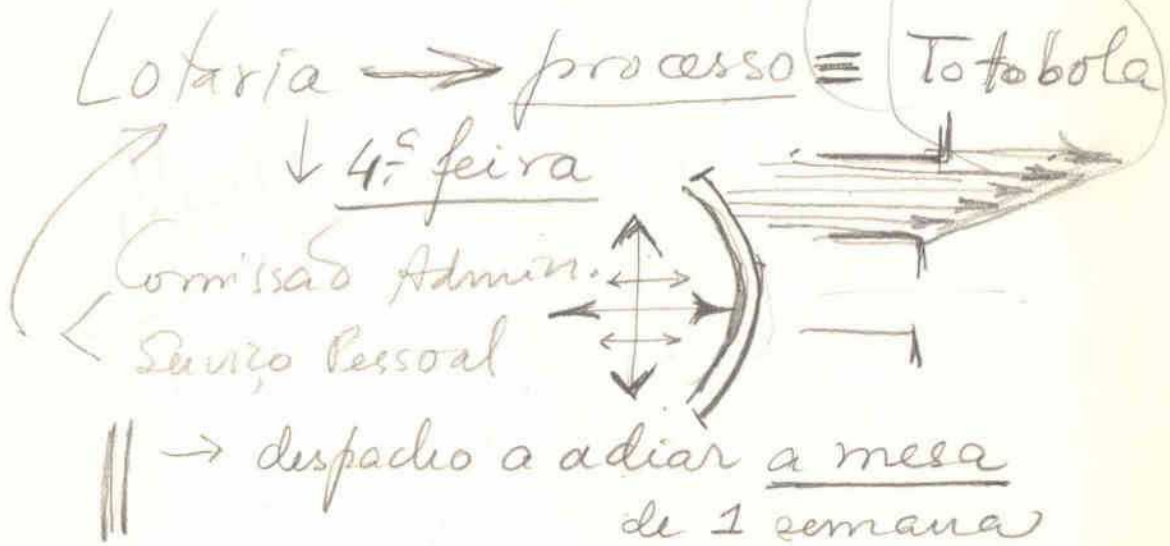 Lotaria → processo ≡ Totobola
↓ 4.ª feira
Comissão Admin.
Serviço Pessoal
→ despacho a adiar a mesa
de 1 semana